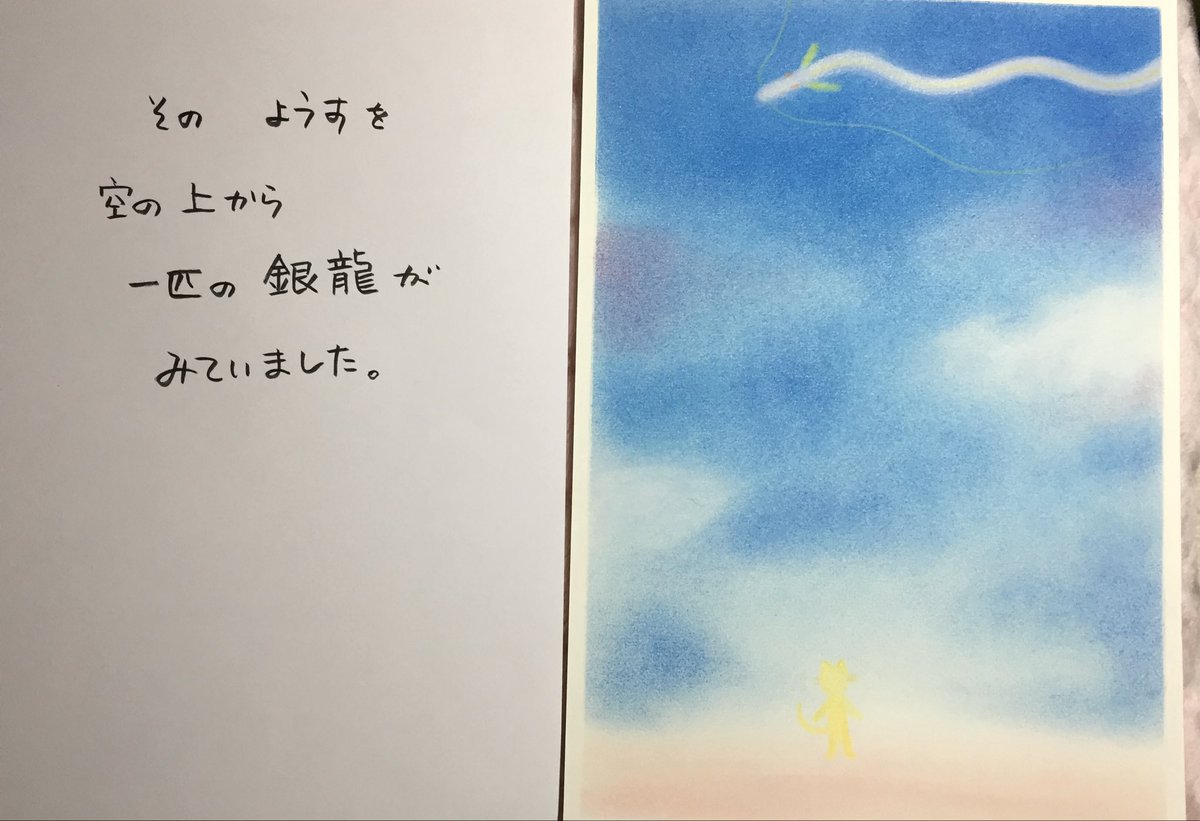 その　ようすを
空の上から
一匹の銀龍が
みていました。